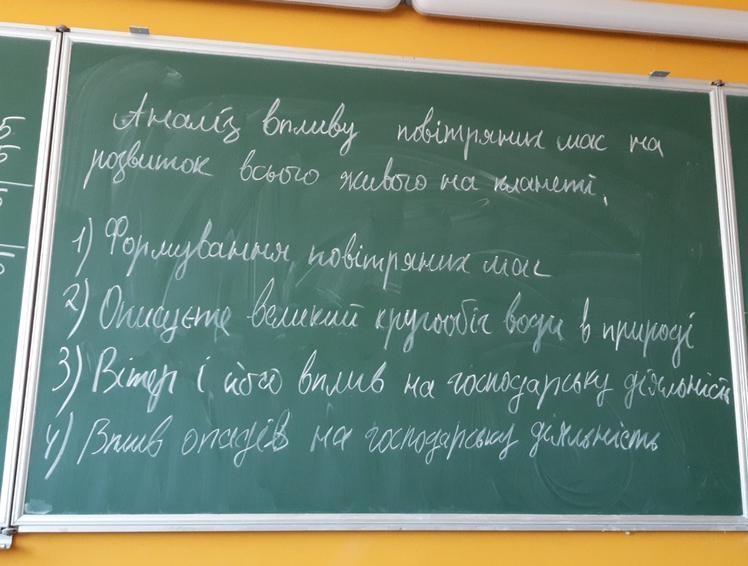 Аналіз впливу повітряних мас на
розвиток всього живого на планеті.
1) Формування повітряних мас
2) Описуєте великий кругообіг води в природі
3) Вітер і його вплив на господарську діяльність
4) Вплив опадів на господарську діяльність